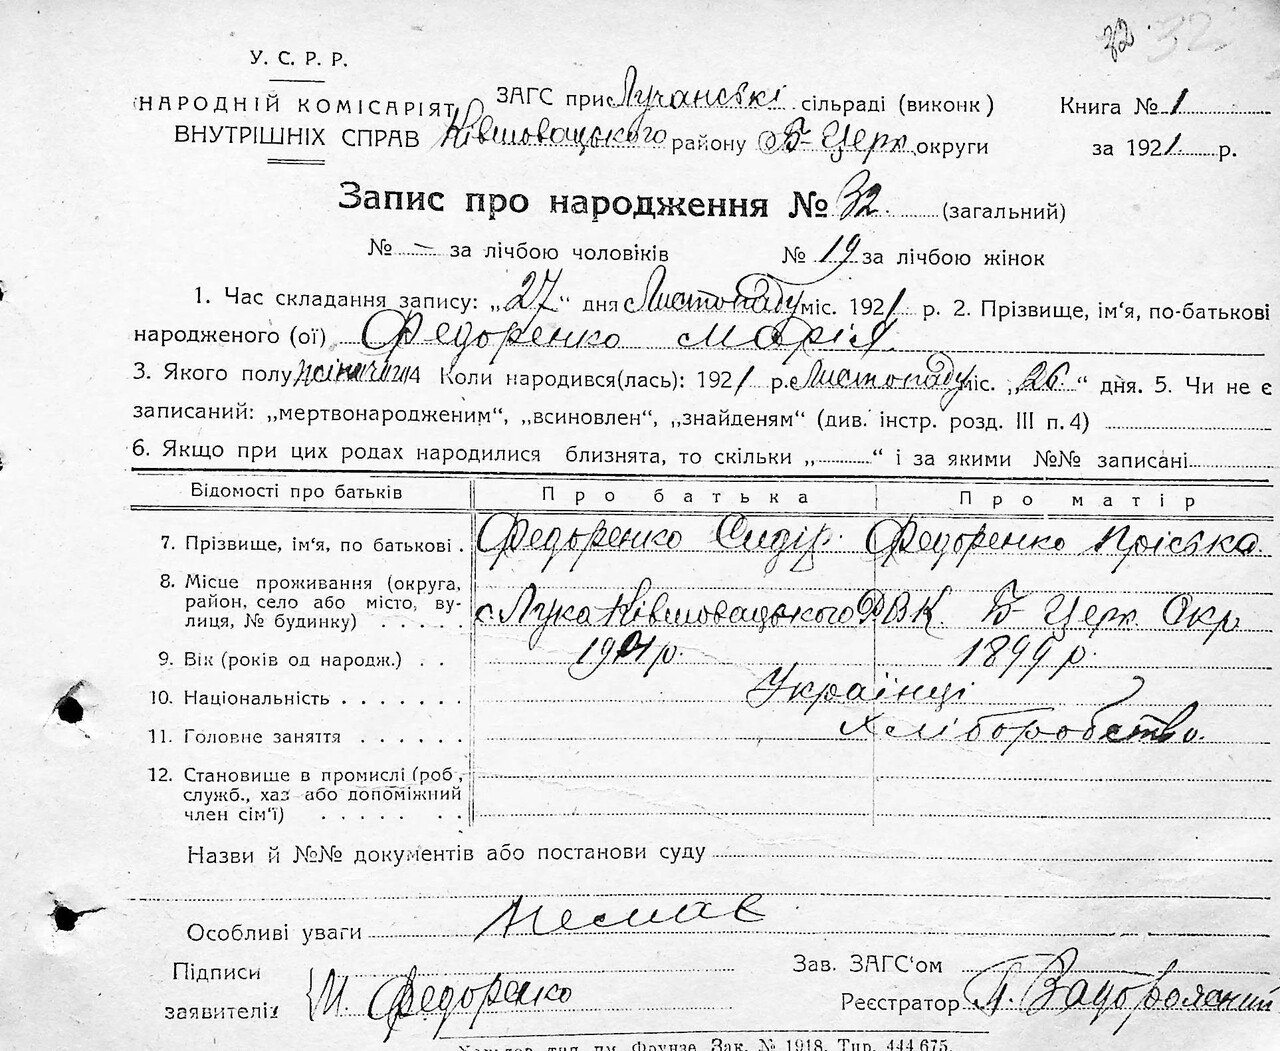 32 32
У. С. Р. Р.
НАРОДНІЙ КОМІСАРІЯТ
ВНУТРІШНІХ СПРАВ
ЗАГС при Лучанській сільраді (виконк)
Ківшовацького району Б-Церк. округи
Книга № 1
за 1921 р.
Запис про народження № 32 (загальний)
№ — за лічбою чоловіків № 19 за лічбою жінок
1. Час складання запису: „27“ дня Листопаду міс. 1921 р. 2. Прізвище, ім'я, по-батькові
народженого (ої) Федоренко Марія
3. Якого полу жіночого 4 Коли народився(лась): 1921 р. Листопаду міс. „26“ дня. 5. Чи не є
записаний: „мертвонародженим“, „всиновлен“, „знайденям“ (див. інстр. розд. III п. 4)
6. Якщо при цих родах народилися близнята, то скільки „ “ і за якими №№ записані
Відомості про батьків Про батька Про матір
7. Прізвище, ім'я, по батькові . Федоренко Сидір. Федоренко Пріська
8. Місце проживання (округа,
район, село або місто, ву-
лиця, № будинку) . . . . . с. Лука Ківшовацького РВК Б-Церк. Окр
9. Вік (років од народж.) . . 1901 р. 1899 р.
10. Національність . . . . . . . Українці
11. Головне заняття . . . . . . Хліборобство.
12. Становище в промислі (роб.,
служб., хаз або допоміжний
член сім'ї) . . . . . . .
Назви й №№ документів або постанови суду
Особливі уваги Немає
Підписи
заявителів М. Федоренко
Зав. ЗАГС'ом
Реєстратор
Харьков, тип. им. Фрунзе Зак. № 1918. Тир. 444 675.